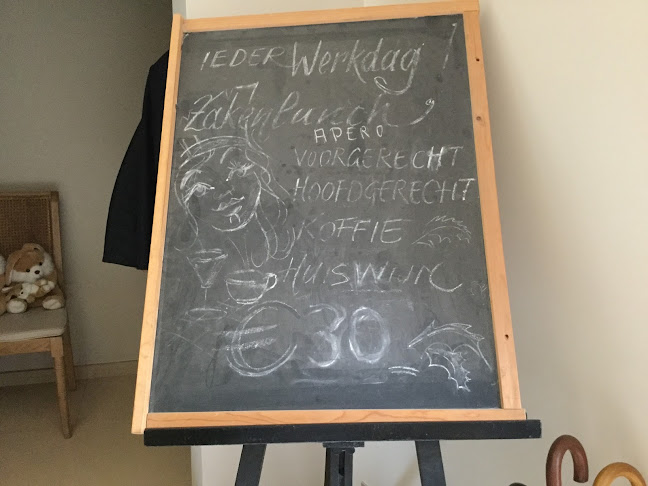 IEDER Werkdag !
Zakenlunch
APERO
VOORGERECHT
HOOFDGERECHT
KOFFIE
HUISWIJN
€30